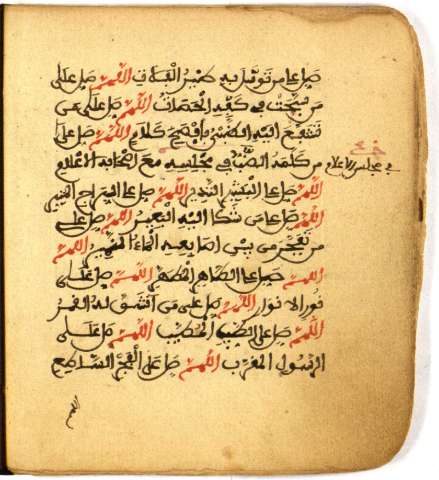 صل على من توسل به طير الفلاة اللهم صل على
من سبحت في كفه الحصاة اللهم صل على من
تشفع اليه الظبي بأفصح كلام اللهم صل على
من كلمه الضب في مجلسه مع أصحابه الاعلام
اللهم صل على البشير النذير اللهم صل على السراج المنير
اللهم صل على من شكا اليه البعير اللهم صل على
من تفجر من بين اصابعه الماء النمير اللهم
صل على الطاهر المطهر اللهم صل على
نور الانوار اللهم صل على من انشق له القمر
اللهم صل على الطيب المطيب اللهم صل على
الرسول المقرب اللهم صل على الفجر الساطع
اللهم